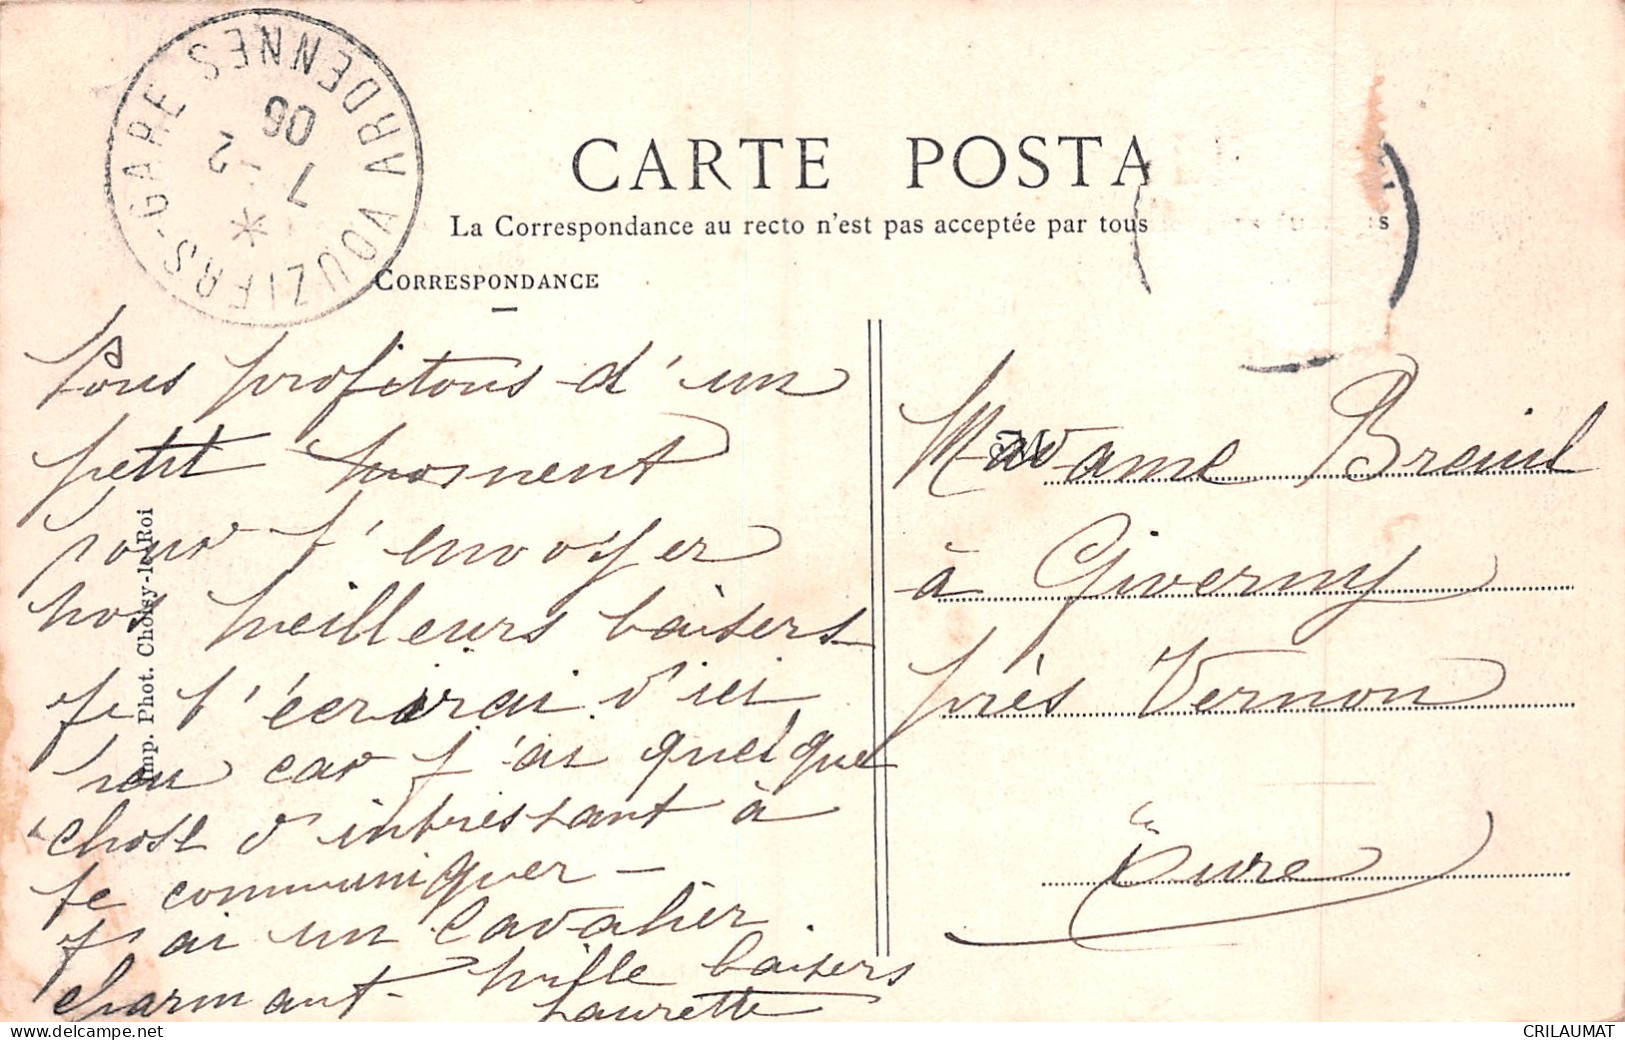 VOUZIERS-GARE ARDENNES
7 - 12
06
CARTE POSTA
La Correspondance au recto n'est pas acceptée par tous
s
CORRESPONDANCE
Nous profitons d'un
petit moment
pour t'envoyer
nos meilleurs baisers
je t'écrirai d'ici
peu car j'ai quelque
chose d'intressant à
te communiquer –
j'ai un cavalier
charmant - mille baisers
Laurette
Imp. Phot. Choisy-le-Roi
Madame Breuil
à Giverny
près Vernon
Eure
delcampe.net
CRILAUMAT